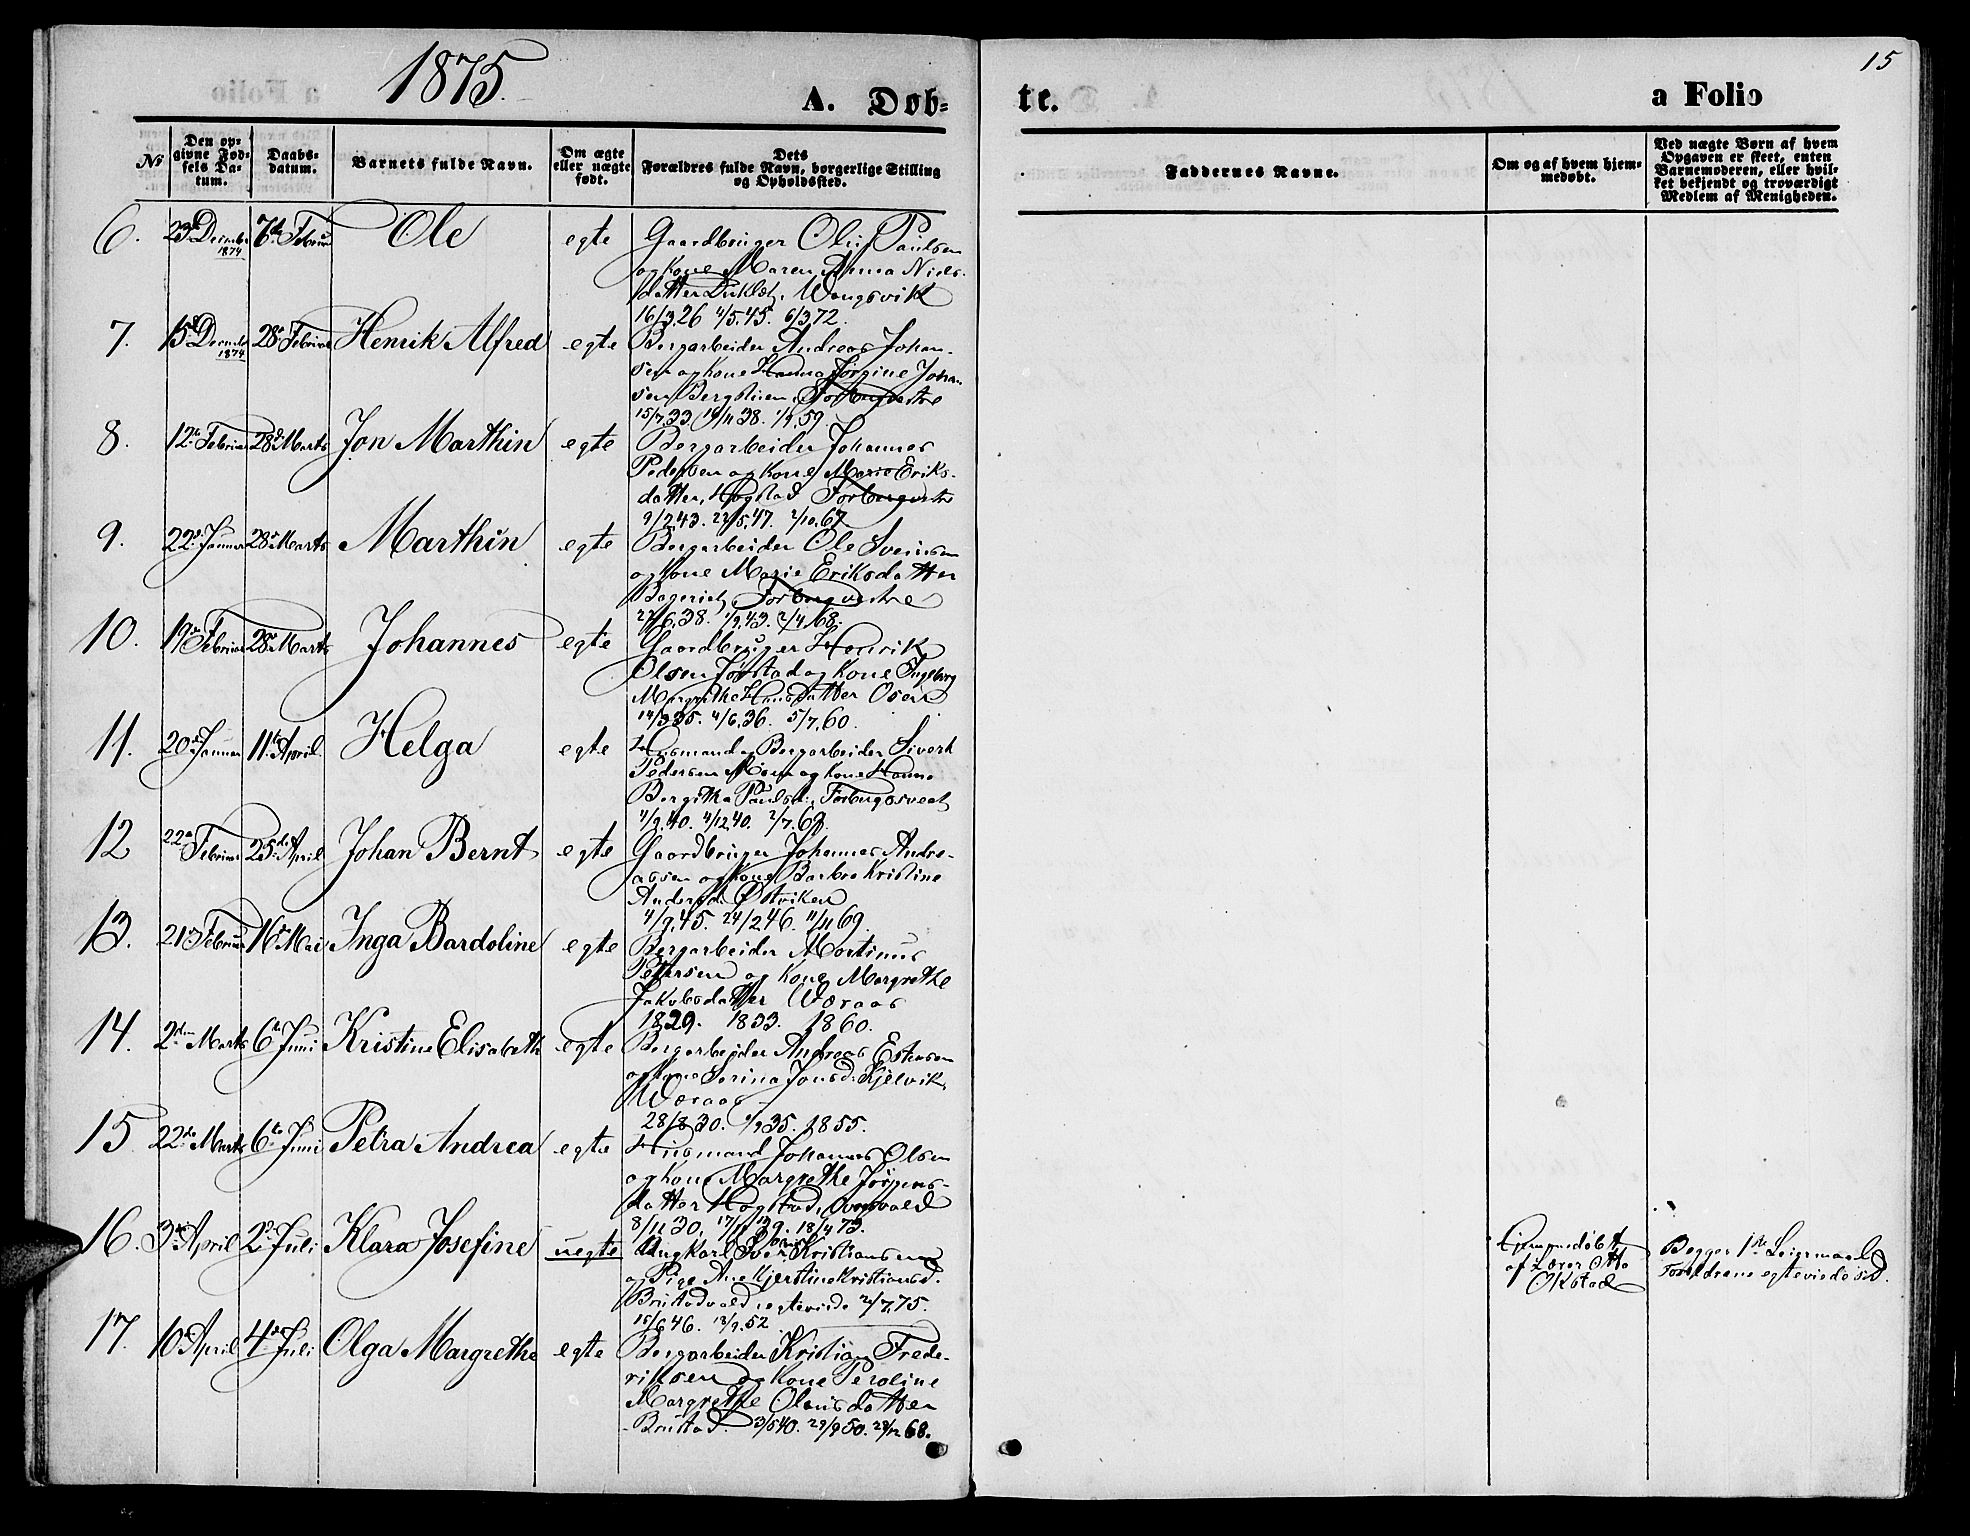 1875.
A. Døb-
te.
a Folio
15
No
Den op-
givne Fød-
sels Da-
tum.
Daabs-
datum.
Barnets fulde Navn.
Om ægte
eller uægte
født.
Dets
Forældres fulde Navn, borgerlige Stilling
og Opholdssted.
Faddernes Navne.
Om og af hvem hjem-
medøbt.
Ved uægte Børn af hvem
Opgaven er skeet, enten
Barnemoderen, eller hvil-
ket bekjendt og troværdigt
Medlem af Menigheden.
6. 1874 Ole egte Gaardbruger Oluf Paulsen
og Kone Maren Anna Niels-
datter Wangsvik
16/3.26 4/5.45. 6/3.72.
7. 1874 Henrik Alfred egte Bergarbeider Andreas Johan-
sen og Kone Hanna Jørgine Johan
sen
15/7.33 1/9.59.
8. 12te Februar 28de Marts Jon Marthin egte Bergarbeider Johannes
Pedersen og Kone Marie Eriks-
datter, Hogstad
9/2.43. 22/5.47. 2/10.67.
9. 22de Januar 28de Marts Marthin egte Bergarbeider Ole Sveinsen
og Kone Marie Eriksdatter
22/6.38. 1/9.43. 2/4.68.
10. 19de Februar 28de Marts Johannes egte Gaardbruger Henrik
Olsen Jøstad og Kone Ingeborg
Margrethe Hansdatter
14/3.35. 4/6.36. 5/7.60.
11. 20de Januar 11te April Helga egte Husmand og Bergarbeider Sivert
Pedersen og Kone Hanna
Bergitha Paulsd.
4/9.40. 4/12.40.
12 22de Februar 25de April Johan Bernt egte Gaardbruger Johannes Andre-
assen og Kone Barbro Kristine
Andersd. Østviken
4/9.45. 24/2.46. 11/11.69.
13. 21de Februar 16de Mai Inga Bardoline egte Bergarbeider Martinus
Petersen og Kone Margrethe
Jakobsdatter Woraas
1829. 1833. 1860.
14. 2den Marts 6te Juni Kristine Elisabeth egte Bergarbeider Andreas Estensen
og Kone Serina Jonsd. Kjelvik,
Woraas
28/8.30. 1/9.35. 1855.
15. 22de Marts 6te Juni Petra Andrea egte Husmand Johannes Olsen
og Kone Margrethe Jørgens-
datter Hogstad,
8/11.30. 18/4.73.
16. 3die April 2den Juli Klara Josefine uegte Ungkarl Kristiansen
og Pige Ane Kjerstine Kristiansd.
Brustadvald, egteviede 2/7.75.
15/6.46. 13/9.52
Hjemmedøbt
af Lærer Otto
Okstad
Begges 1ste Leiermaal
Foreldrene egteviede
17. 10de April 4de Juli Olga Margrethe egte Bergarbeider Kristian Frede-
riksen og Kone Peroline
Margrethe Olausdatter
Brustad. 3/5.40. 29/9.50. 28/12.68.